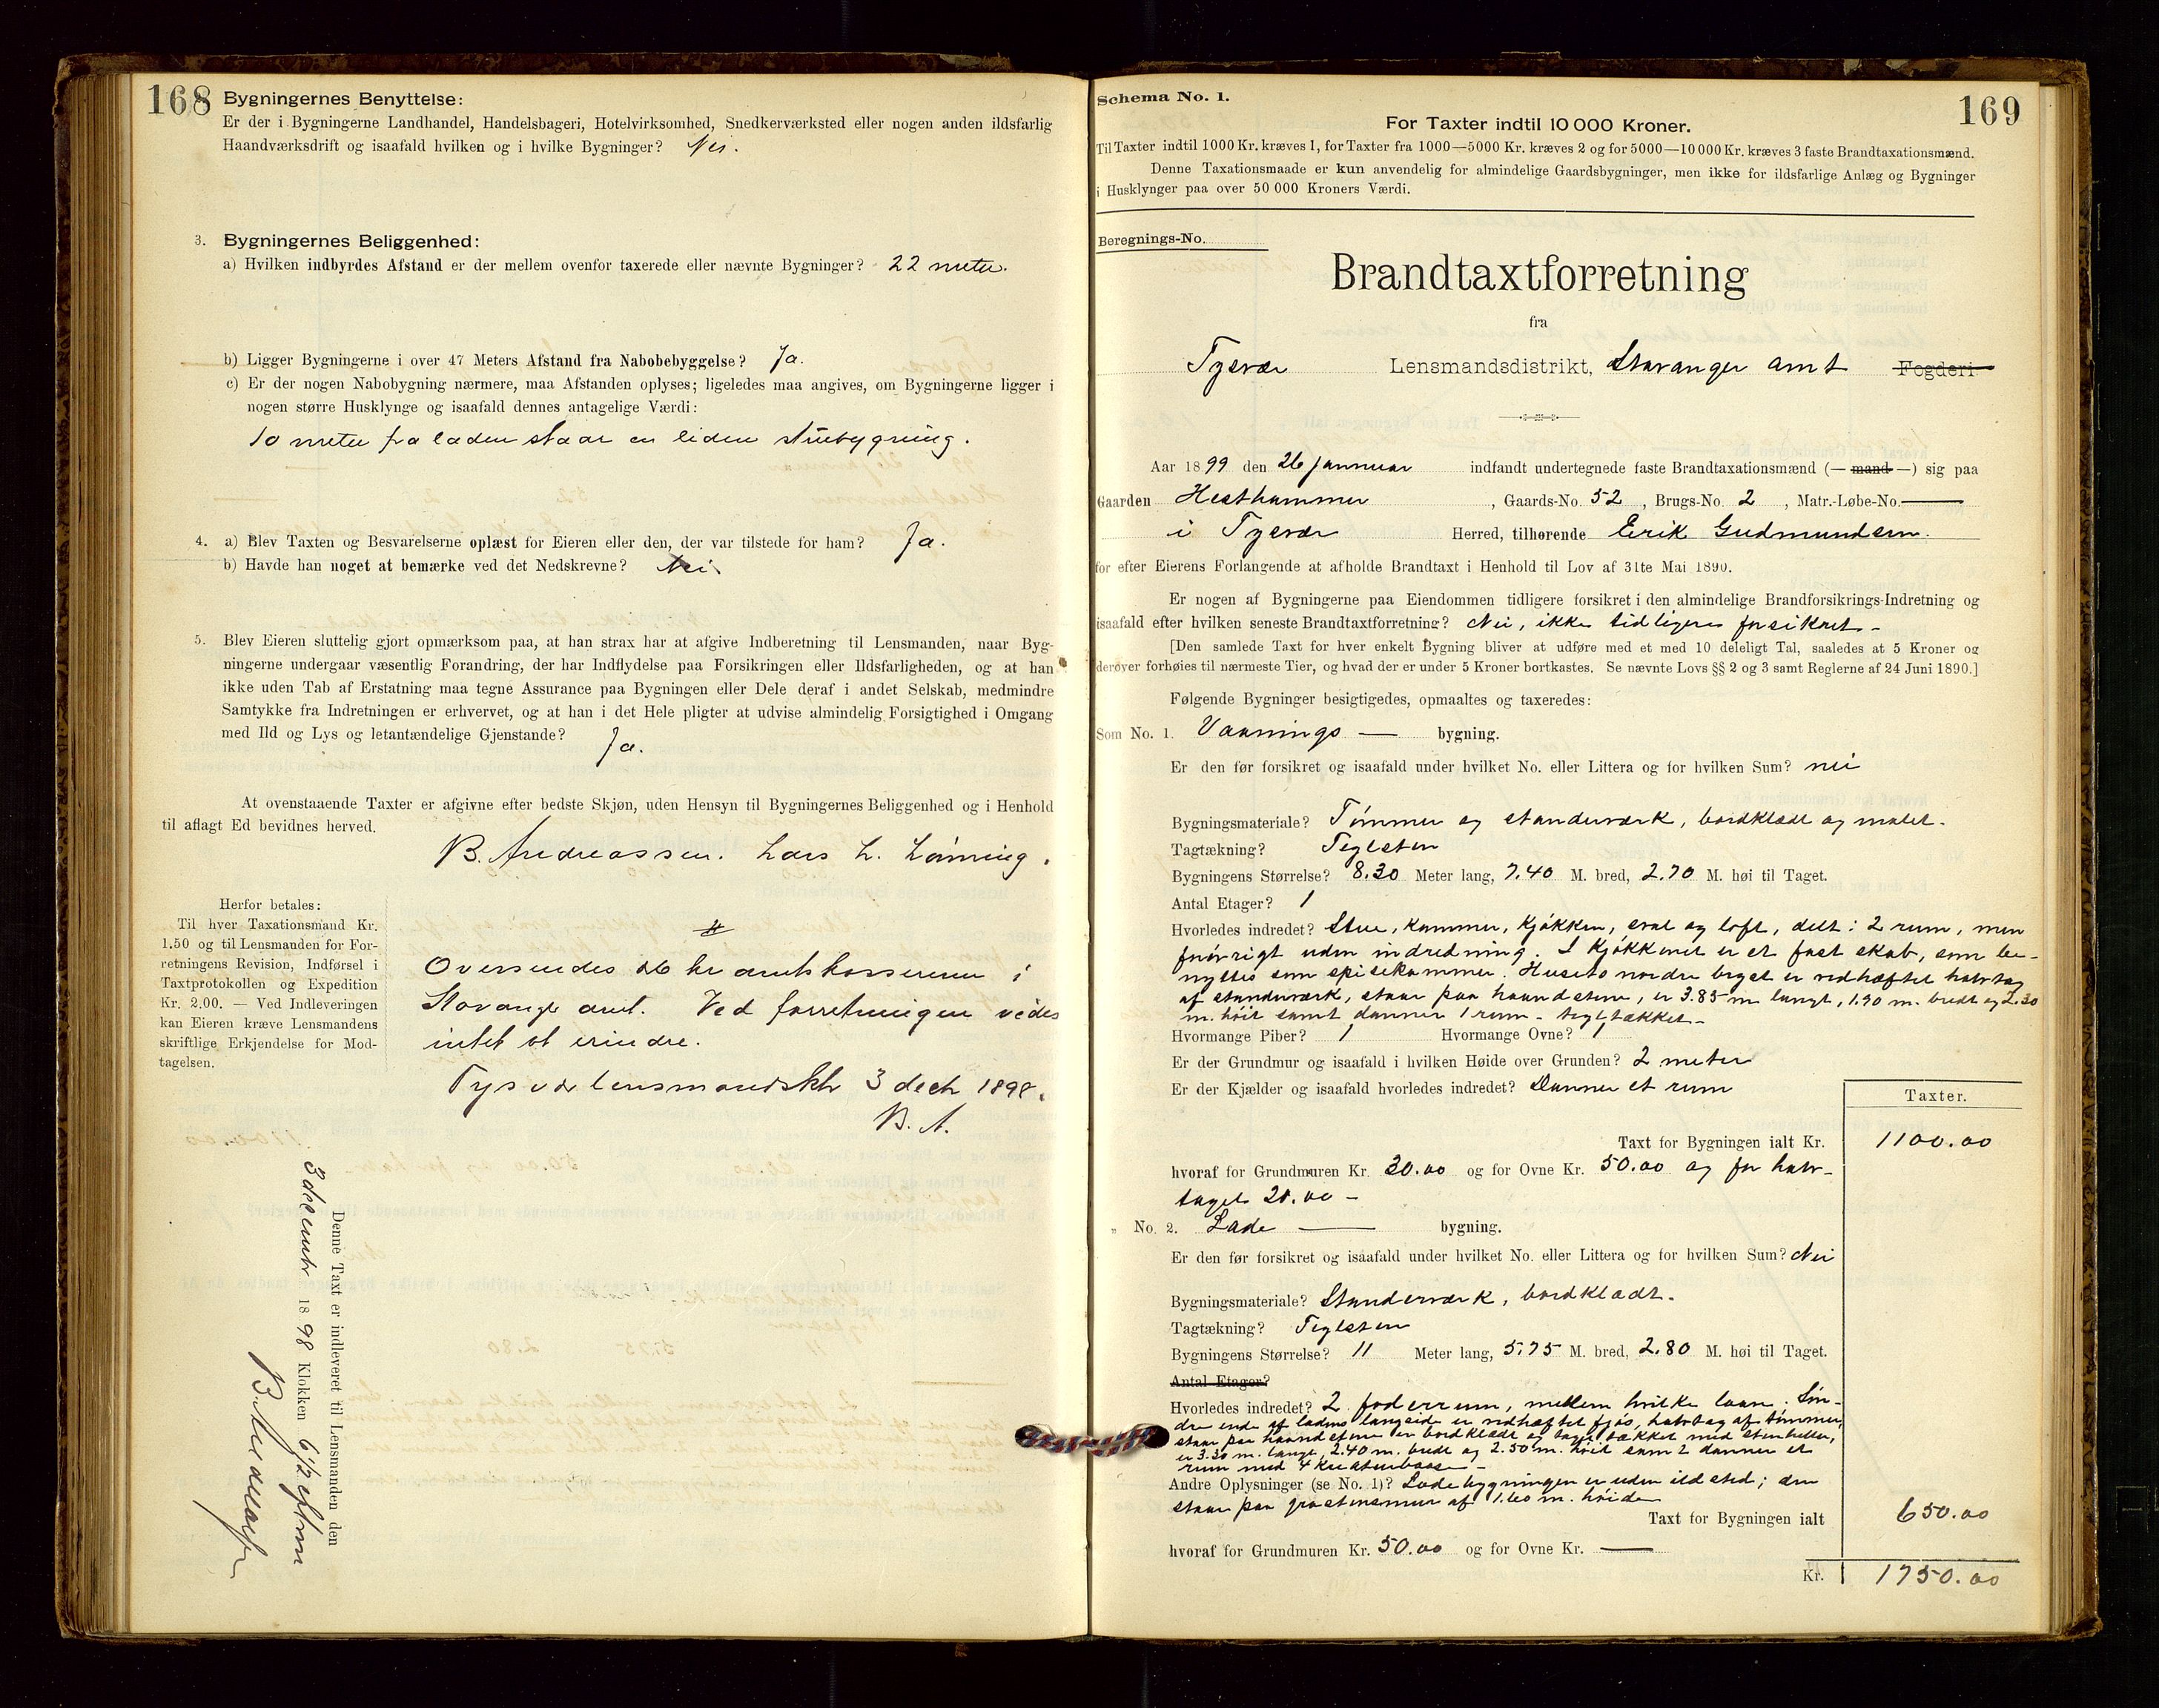 168
Bygningernes Benyttelse:
Er der i Bygningerne Landhandel, Handelsbageri, Hotelvirksomhed, Snedkerværksted eller nogen anden ildsfarlig
Haandværksdrift og isaafald hvilken og i hvilke Bygninger? Nei.
3. Bygningernes Beliggenhed:
a) Hvilken indbyrdes Afstand er der mellem ovenfor taxerede eller nævnte Bygninger? 22 meter.
b) Ligger Bygningerne i over 47 Meters Afstand fra Nabobebyggelse? Ja.
c) Er der nogen Nabobygning nærmere, maa Afstanden oplyses; ligeledes maa angives, om Bygningerne ligger i
nogen større Husklynge og isaafald dennes antagelige Værdi:
10 meter fra laden staar en liden stuebygning.
4. a) Blev Taxten og Besvarelserne oplæst for Eieren eller den, der var tilstede for ham? Ja.
b) Havde han noget at bemærke ved det Nedskrevne? Nei.
5. Blev Eieren sluttelig gjort opmærksom paa, at han strax har at afgive Indberetning til Lensmanden, naar Byg-
ningerne undergaar væsentlig Forandring, der har Indflydelse paa Forsikringen eller Ildsfarligheden, og at han
ikke uden Tab af Erstatning maa tegne Assurance paa Bygningen eller Dele deraf i andet Selskab, medmindre
Samtykke fra Indretningen er erhvervet, og at han i det Hele pligter at udvise almindelig Forsigtighed i Omgang
med Ild og Lys og letantændelige Gjenstande? Ja.
At ovenstaaende Taxter er afgivne efter bedste Skjøn, uden Hensyn til Bygningernes Beliggenhed og i Henhold
til aflagt Ed bevidnes herved.
B. Andreassen. Lars L. Lønning.
Herfor betales:
Til hver Taxationsmand Kr.
1.50 og til Lensmanden for For-
retningens Revision, Indførsel i
Taxtprotokollen og Expedition
Kr. 2.00. — Ved Indleveringen
kan Eieren kræve Lensmandens
skriftlige Erkjendelse for Mod-
tagelsen.
Oversendes hr amtskassereren i
Stavanger amt. Ved forretningen vides
intet at erindre.
Tysvær lensmandsktr 3 decbr 1898.
B. A.
Denne Taxt er indleveret til Lensmanden den
3 december 1898 Klokken 6 1/2 efterm
B. Andreassen
Schema No. 1.
169
For Taxter indtil 10 000 Kroner.
Til Taxter indtil 1000 Kr. kræves 1, for Taxter fra 1000—5000 Kr. kræves 2 og for 5000—10 000 Kr. kræves 3 faste Brandtaxationsmænd.
Denne Taxationsmaade er kun anvendelig for almindelige Gaardsbygninger, men ikke for ildsfarlige Anlæg og Bygninger
i Husklynger paa over 50 000 Kroners Værdi.
Beregnings-No.
Brandtaxtforretning
fra
Tysvær Lensmandsdistrikt, Stavanger amt Fogderi.
Aar 1899 den 26 januar indfandt undertegnede faste Brandtaxationsmænd (— mand —) sig paa
Gaarden Hesthammer, Gaards-No. 52, Brugs-No. 2, Matr.-Løbe-No. —
i Tysvær Herred, tilhørende Erik Gudmundsen.
for efter Eierens Forlangende at afholde Brandtaxt i Henhold til Lov af 31te Mai 1890.
Er nogen af Bygningerne paa Eiendommen tidligere forsikret i den almindelige Brandforsikrings-Indretning og
isaafald efter hvilken seneste Brandtaxtforretning? Nei, ikke tidligere forsikret.
[Den samlede Taxt for hver enkelt Bygning bliver at udføre med et med 10 deleligt Tal, saaledes at 5 Kroner og
derover forhøies til nærmeste Tier, og hvad der er under 5 Kroner bortkastes. Se nævnte Lovs §§ 2 og 3 samt Reglerne af 24 Juni 1890.]
Følgende Bygninger besigtigedes, opmaaltes og taxeredes:
Som No. 1. Vaanings — bygning.
Er den før forsikret og isaafald under hvilket No. eller Littera og for hvilken Sum? nei
Bygningsmateriale? Tømmer og standerværk, bordklædt og malet.
Tagtækning? Teglsten
Bygningens Størrelse? 8.30 Meter lang, 7.40 M. bred, 2.70 M. høi til Taget.
Antal Etager? 1
Hvorledes indredet? Stue, kammer, kjøkken, sval og loft, delt i 2 rum, men
forøvrigt uden indredning. I kjøkkenet er et fast skab, som be-
nyttes som spisekammer. Husets nordre bryst er vedhæftet halvtag
af standerværk, staar paa haandstene, er 3.85 m. langt, 1.90 m. bredt og 2.30
m. høit samt danner 1 rum - tegltækket -
Hvormange Piber? 1 Hvormange Ovne? 1
Er der Grundmur og isaafald i hvilken Høide over Grunden? 2 meter
Er der Kjælder og isaafald hvorledes indredet? Danner et rum
Taxter.
Taxt for Bygningen ialt Kr. 1100.00
hvoraf for Grundmuren Kr. 30.00 og for Ovne Kr. 50.00 og for halv-
taget 20.00 -
" No. 2. Lade — bygning.
Er den før forsikret og isaafald under hvilket No. eller Littera og for hvilken Sum? Nei
Bygningsmateriale? Standerværk, bordklædt.
Tagtækning? Teglsten
Bygningens Størrelse? 11 Meter lang, 5.75 M. bred, 2.80 M. høi til Taget.
Antal Etager?
Hvorledes indredet? 2 foderrum, mellem hvilke laave. Søn-
dre ende af ladens langside er vedhæftet fjøs, halvtag af tømmer,
staar paa haandstene er bordklædt og taget tækket med stenheller,
er 3.30 m. langt, 2.40 m. bredt og 2.50 m. høit samt danner et
rum med 4 kreaturbaase -
Andre Oplysninger (se No. 1)? Ladebygningen er uden ildsted; den
staar paa graastensmur af 1.60 m. høide
Taxt for Bygningen ialt 650.00
hvoraf for Grundmuren Kr. 50.00 og for Ovne Kr. —
Kr. 1750.00